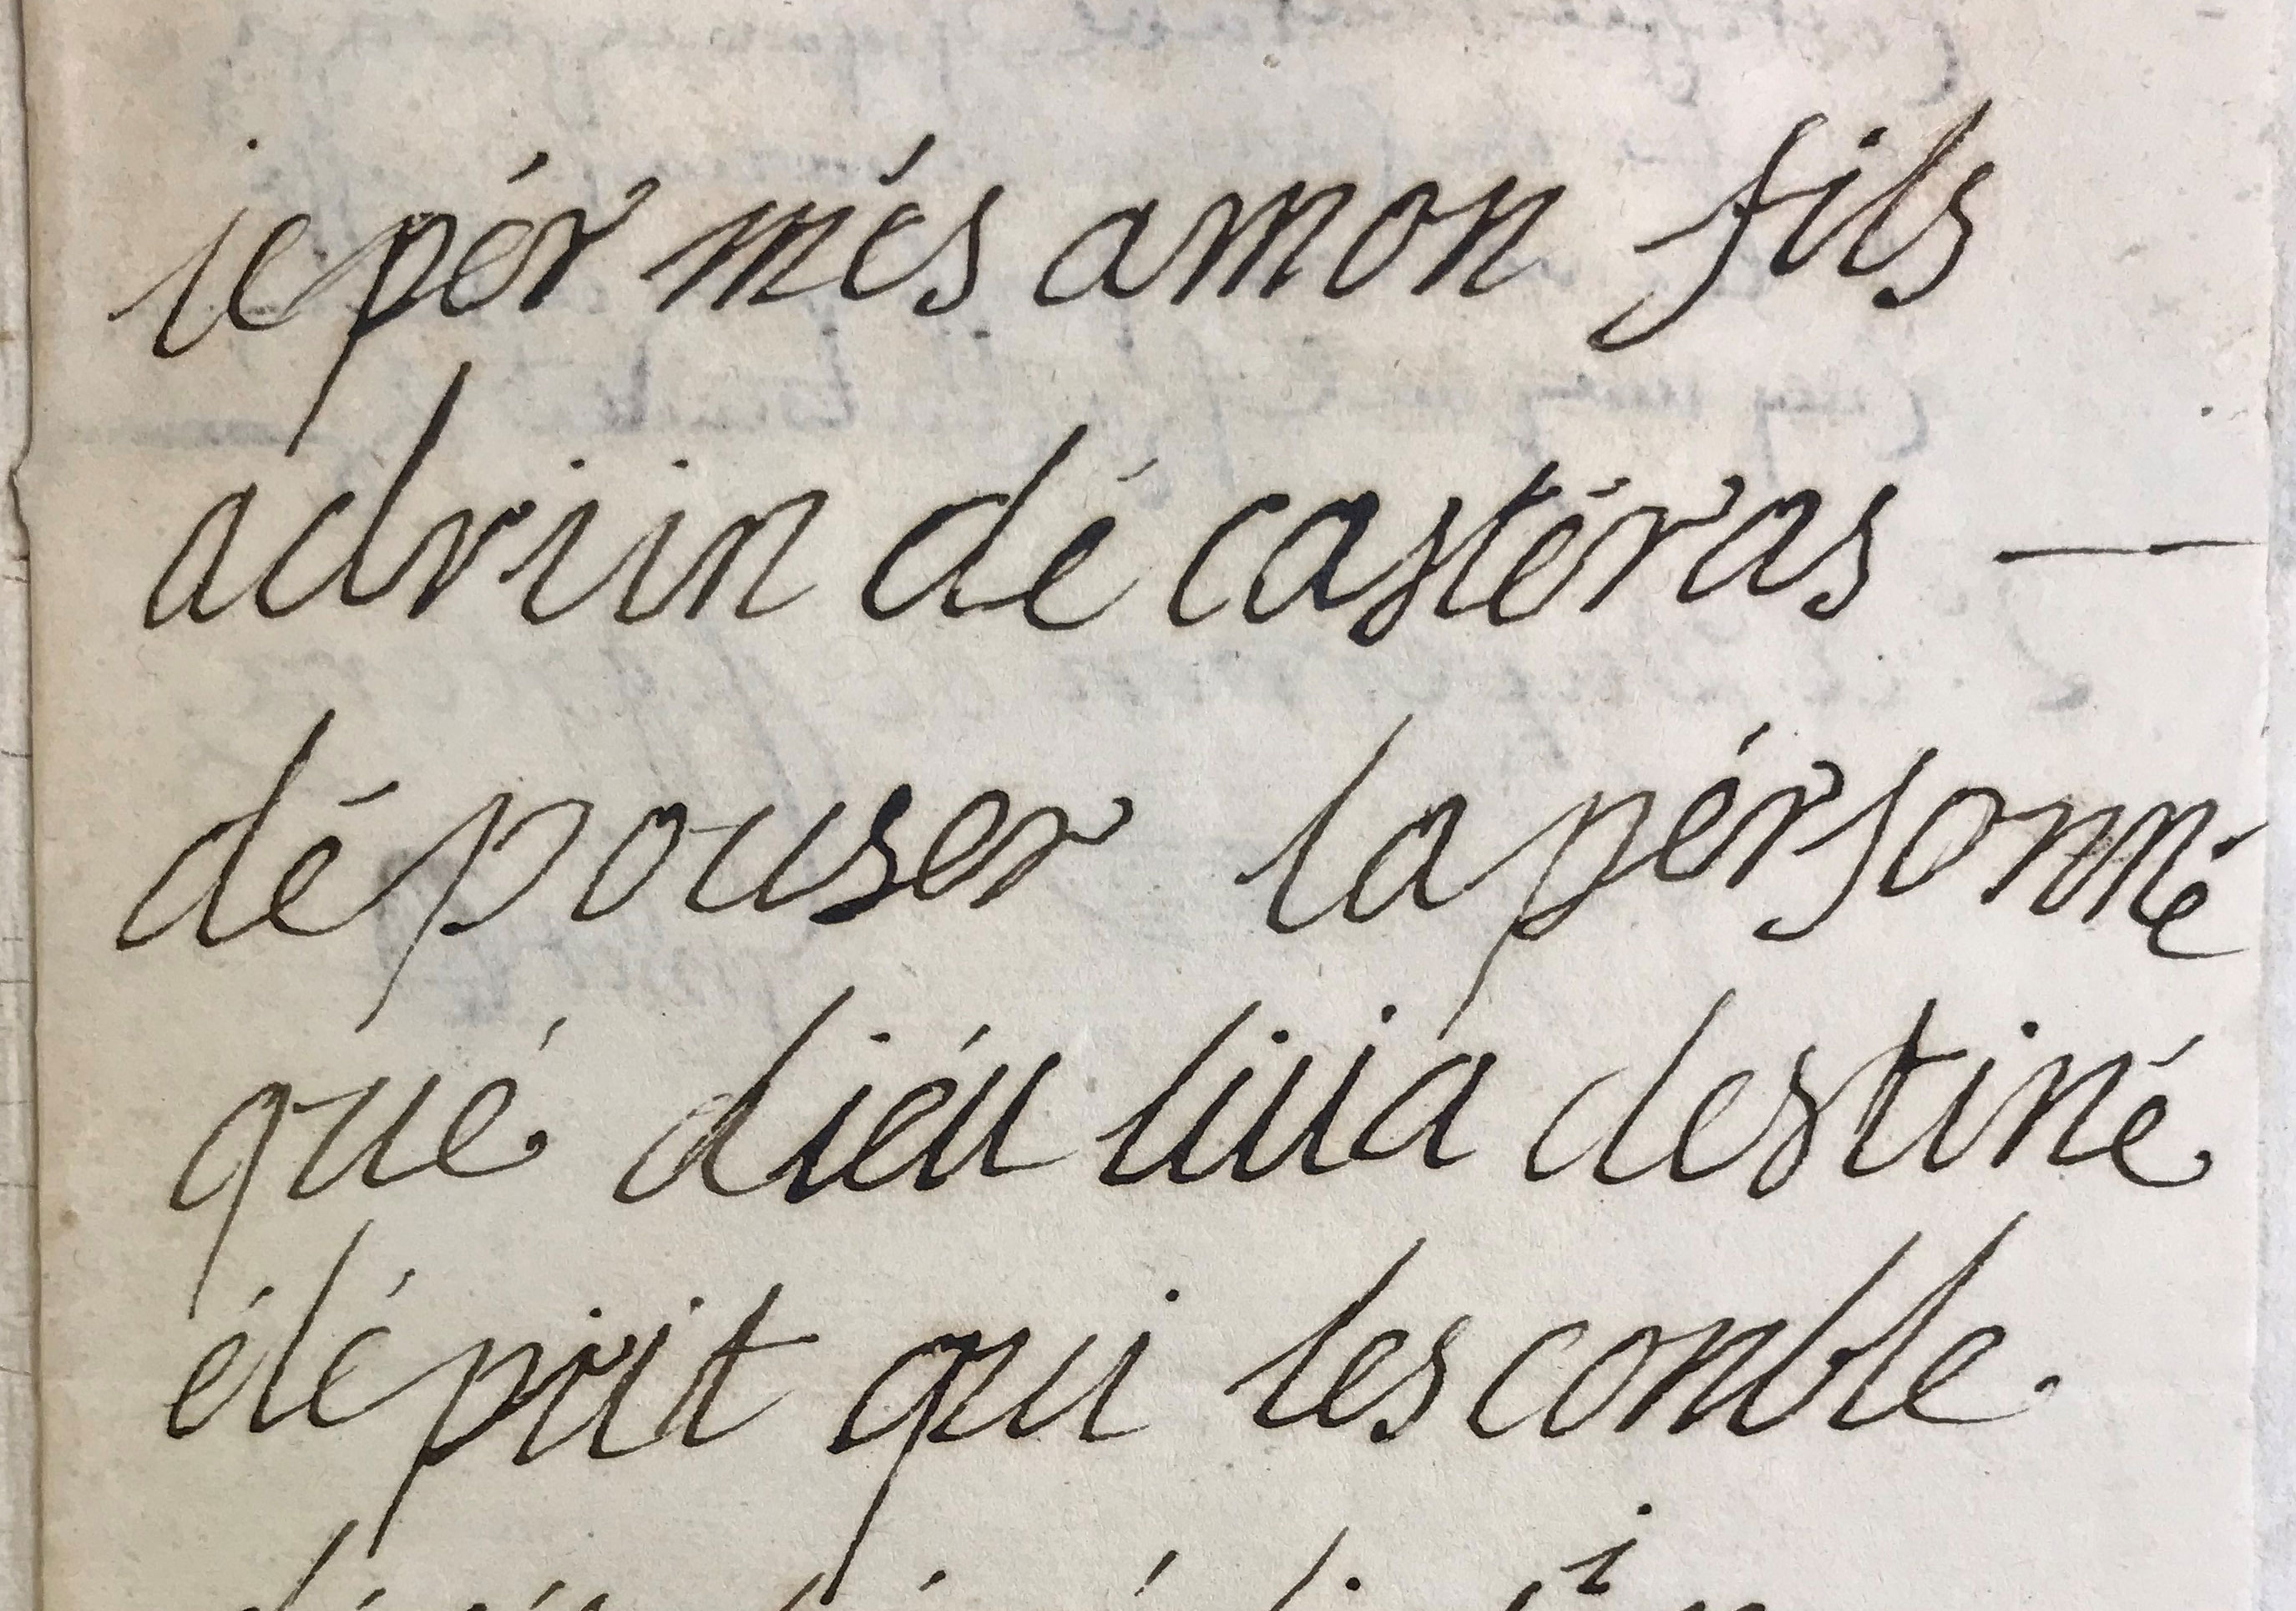 ie pér més amon fils
adriin dé castéras —
dé pouser la pérsonné
qué diéu luia destiné
élé priit qui les conble.